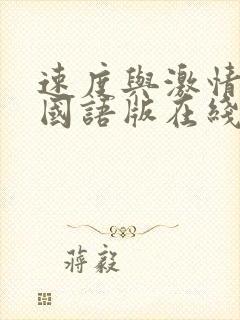 速度與激情
國語版在綫
蔣毅